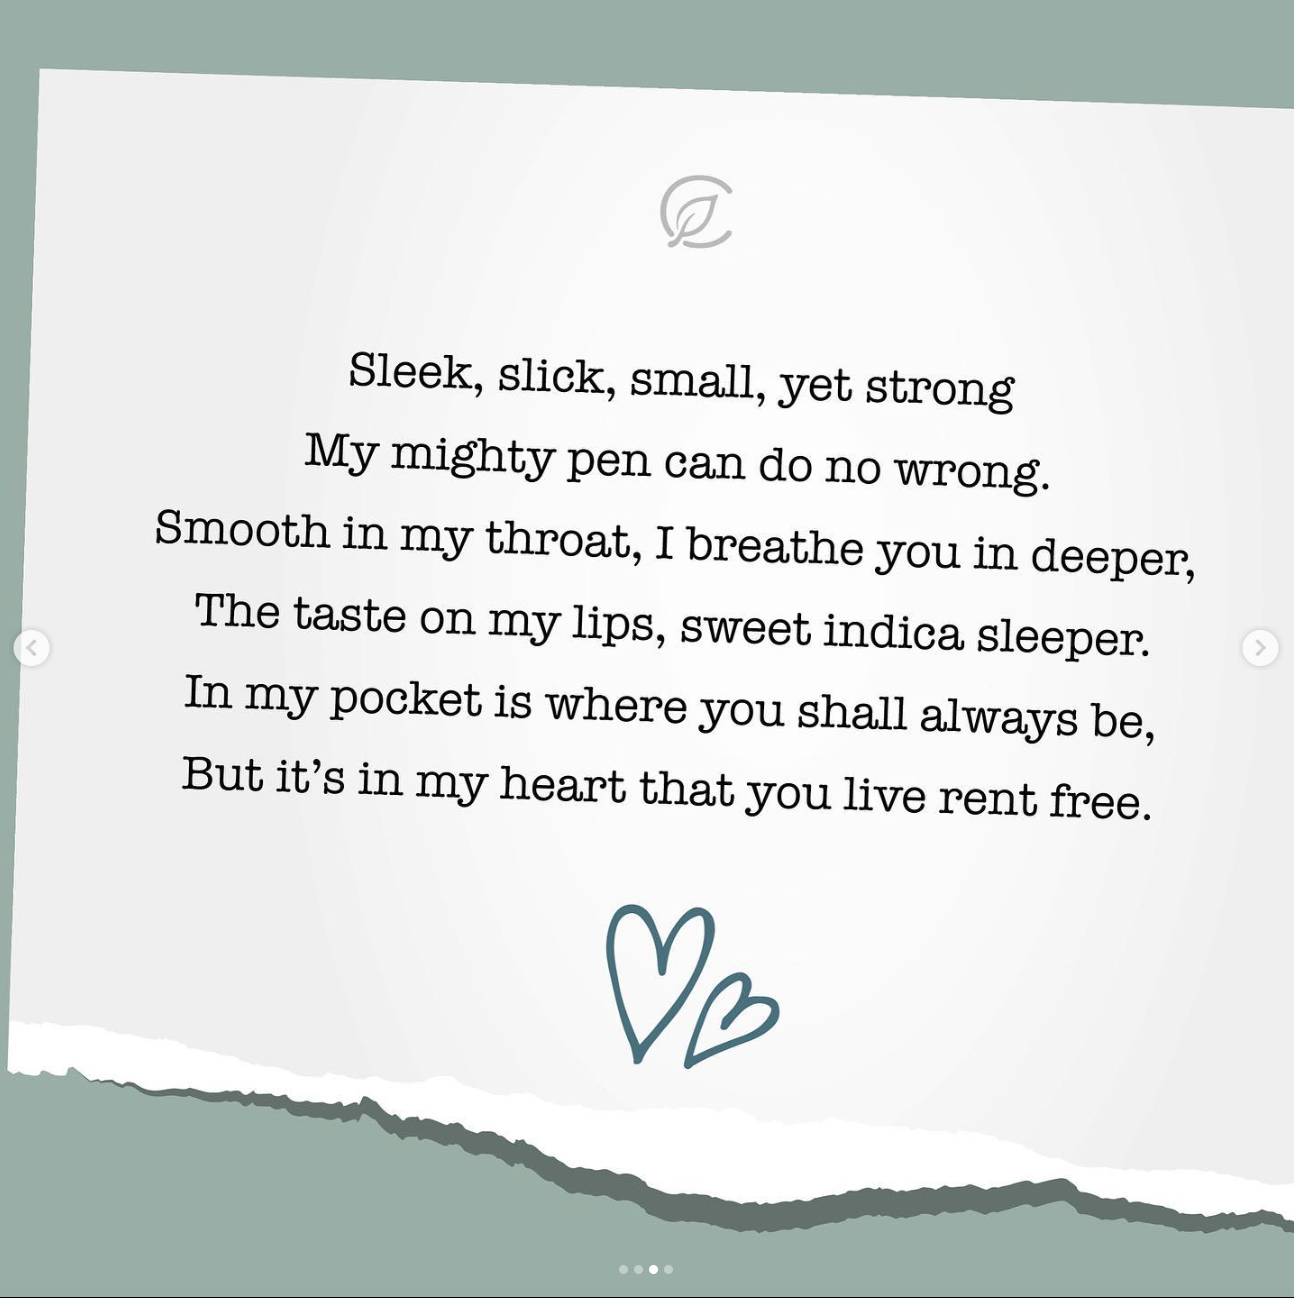 Sleek, slick, small, yet strong
My mighty pen can do no wrong.
Smooth in my throat, I breathe you in deeper,
The taste on my lips, sweet indica sleeper.
In my pocket is where you shall always be,
But it’s in my heart that you live rent free.